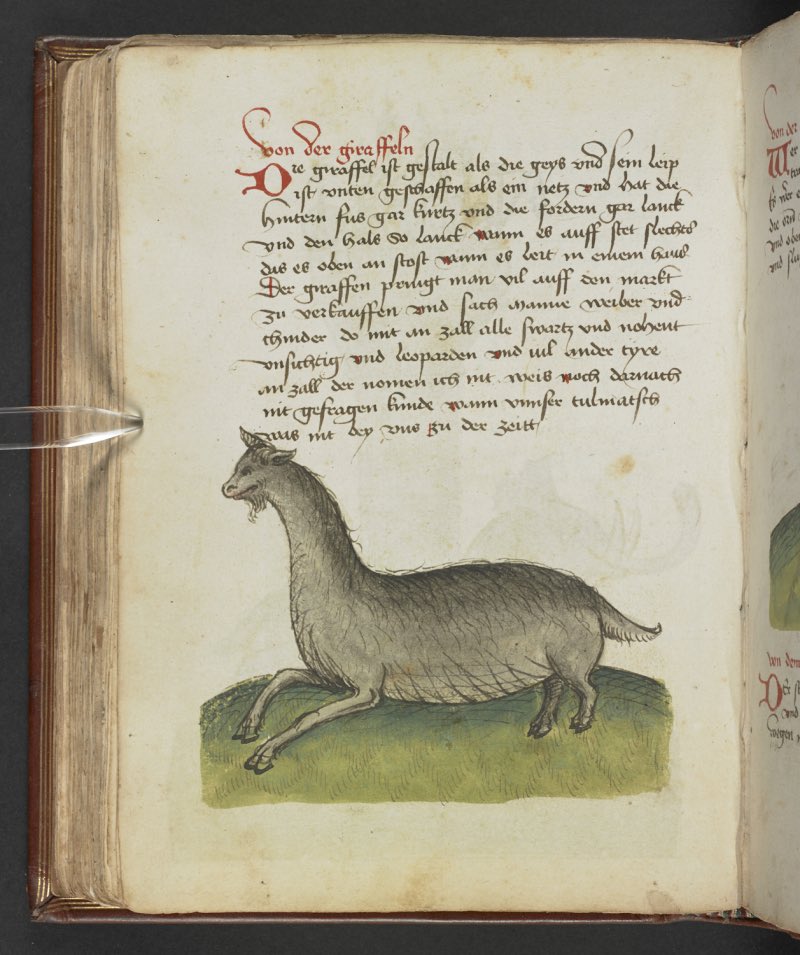 von der giraffeln
Die giraffel ist gestalt als die geys vnd sein leip
ist vnten geschaffen als ein netz vnd hat die
hintern fus gar kurtz vnd die fordern gar lanck
vnd den hals so lanck wann es auff stet slechts
das es oben an stost wann es leit in einem haus
Der giraffen pringt man vil auff den marckt
zu verkauffen vnd sach manne weiber vnd
chinder do mit an zall alle swartz vnd nohent
vnsichtig vnd leoparden vnd vil ander tyre
an zall der nomen ich nit weis noch darnach
nit gefragen kunde wann vnnser tulmatsch
was nit bey vns zu der zeitt
von der
von dem
Der
vnd
wegen